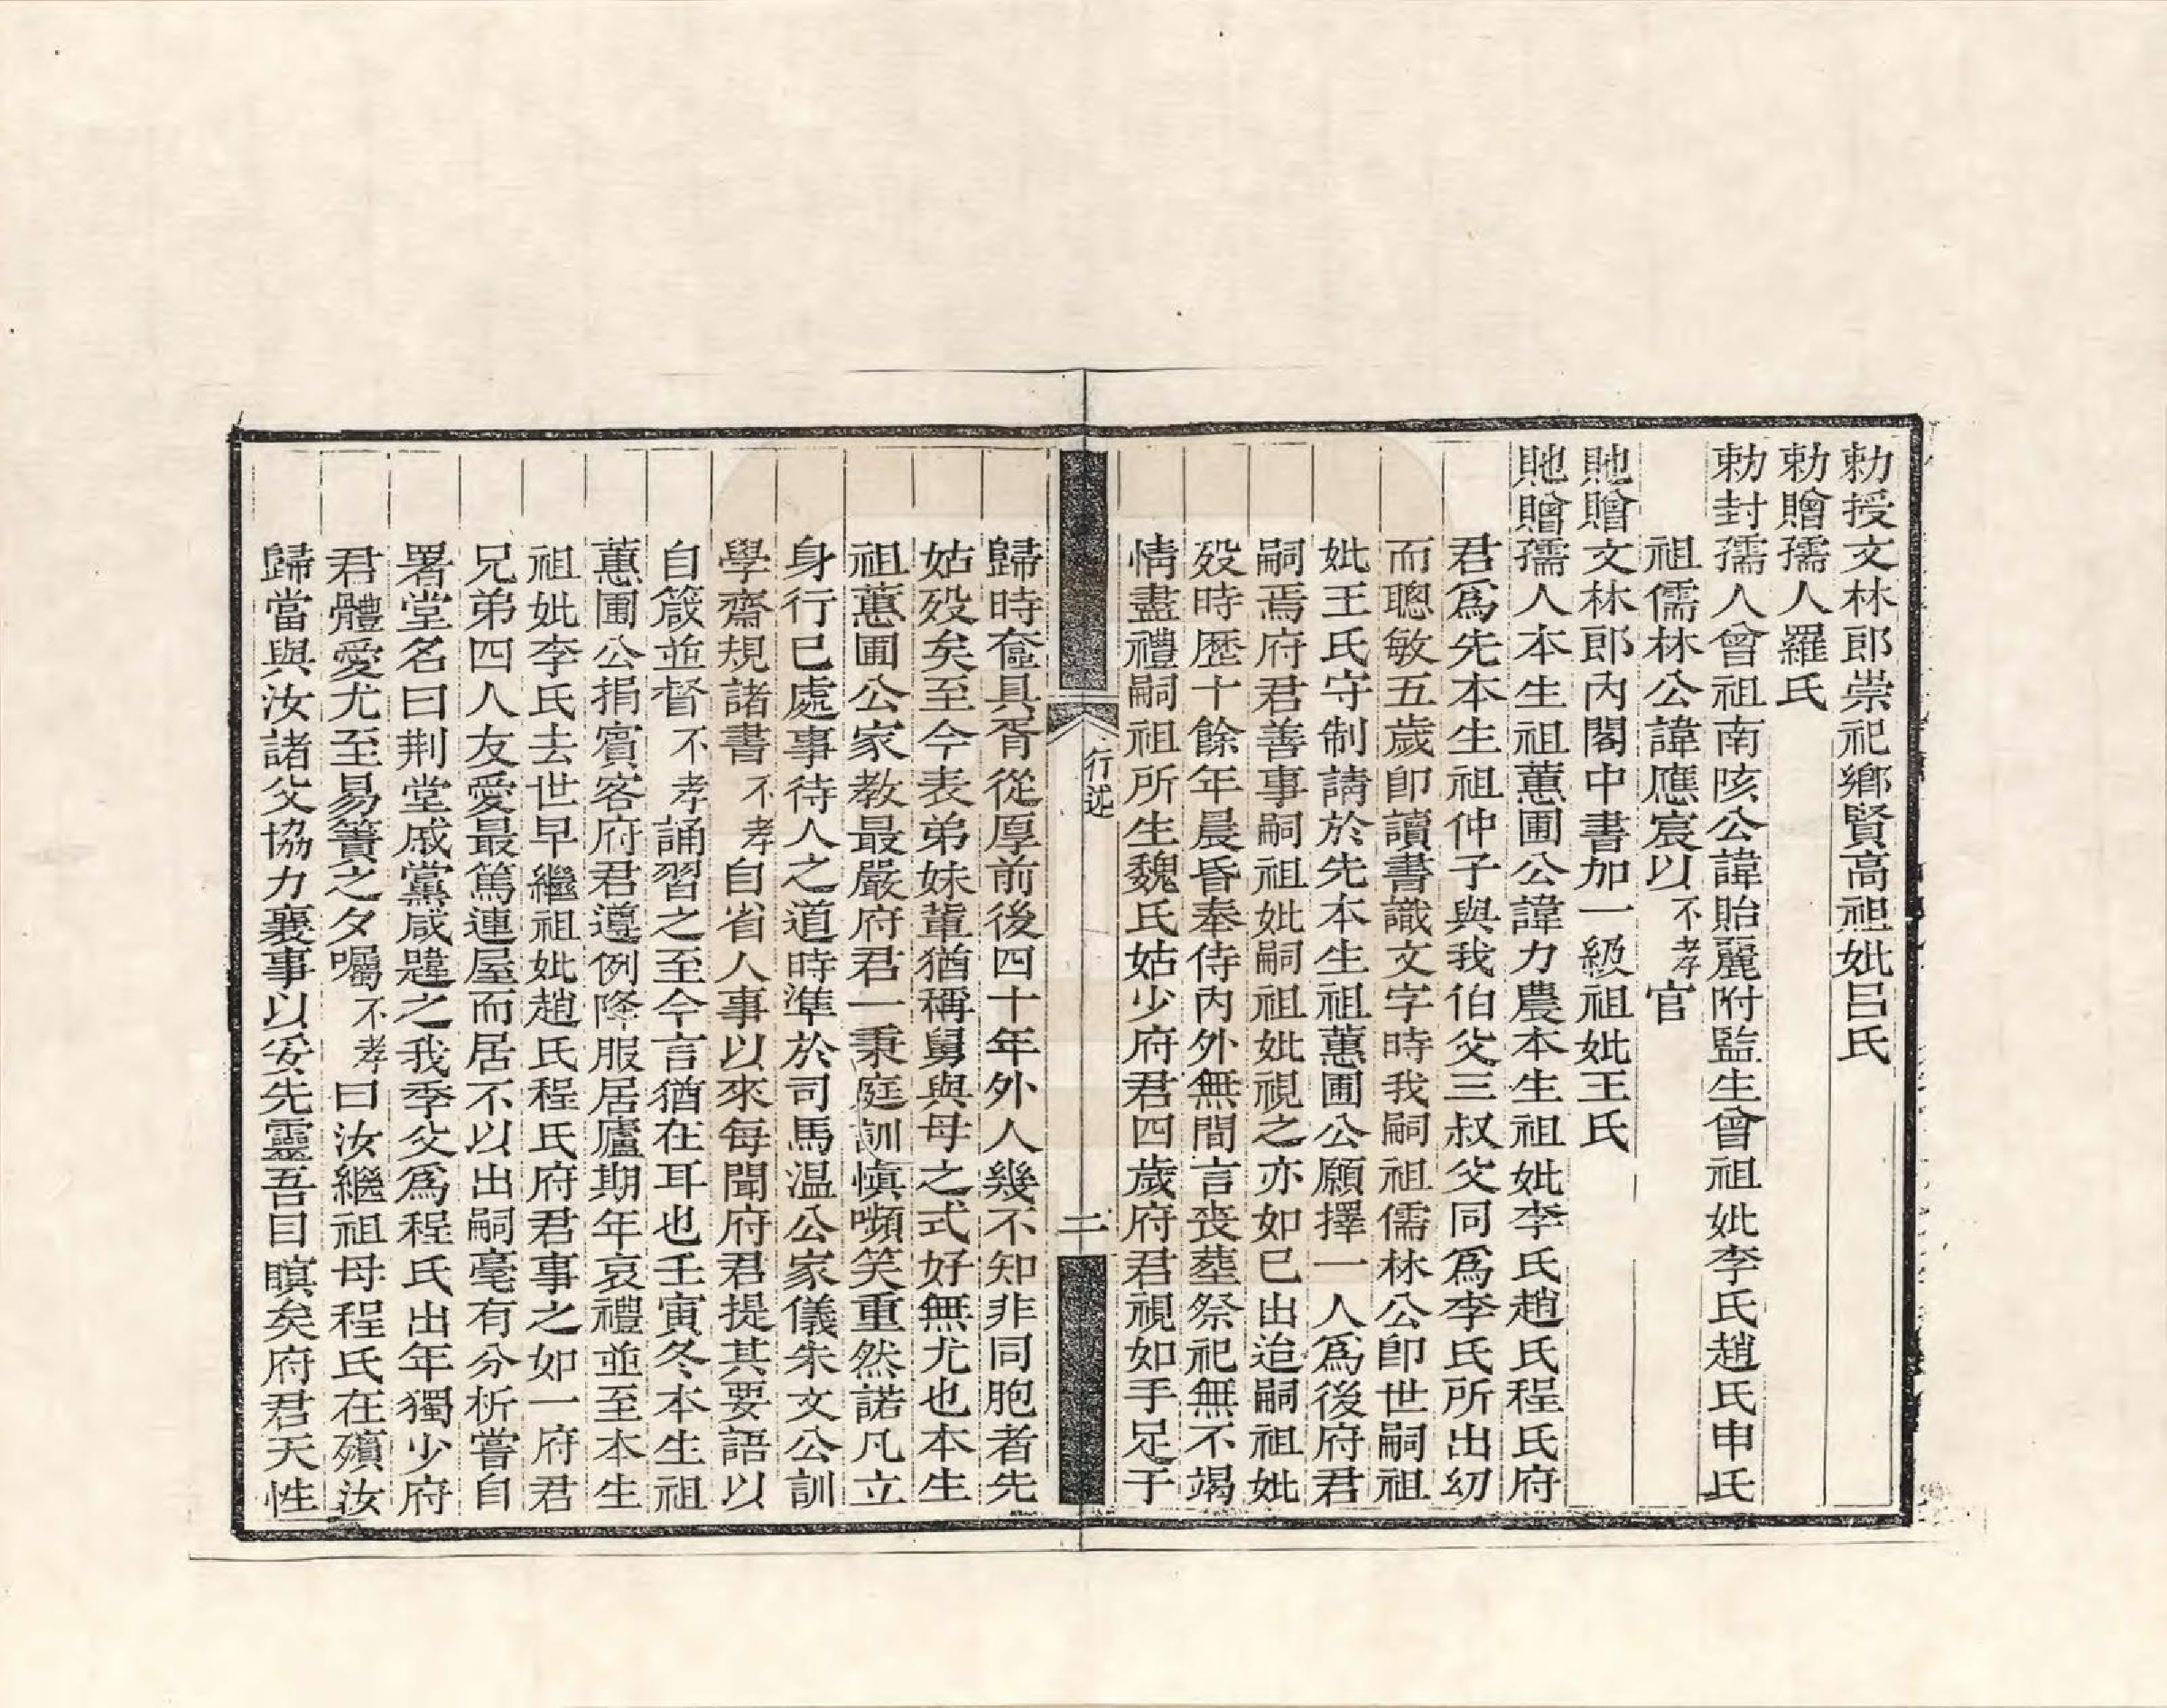 勅授文林郎崇祀鄉賢高祖妣呂氏
勅贈孺人羅氏
勅封孺人曾祖南陔公諱貽麗附監生曾祖妣李氏趙氏申氏
祖儒林公諱應宸以不孝官
貤贈文林郎內閣中書加一級祖妣王氏
貤贈孺人本生祖蕙圃公諱力農本生祖妣李氏趙氏程氏府
君爲先本生祖仲子與我伯父三叔父同爲李氏所出幼
而聰敏五歲卽讀書識文字時我嗣祖儒林公卽世嗣祖
妣王氏守制請於先本生祖蕙圃公願擇一人爲後府君
嗣焉府君善事嗣祖妣嗣祖妣視之亦如己出迨嗣祖妣
歿時歷十餘年晨昏奉侍內外無間言喪葬祭祀無不竭
情盡禮嗣祖所生魏氏姑少府君四歲府君視如手足于
行述
二
歸時奩具胥從厚前後四十年外人幾不知非同胞者先
姑歿矣至今表弟妹輩猶稱舅與母之式好無尤也本生
祖蕙圃公家教最嚴府君一秉庭訓愼嚬笑重然諾凡立
身行己處事待人之道時準於司馬温公家儀朱文公訓
學齋規諸書不孝自省人事以來每聞府君提其要語以
自箴並督不孝誦習之至今言猶在耳也壬寅冬本生祖
蕙圃公捐賓客府君遵例降服居廬期年哀禮並至本生
祖妣李氏去世早繼祖妣趙氏程氏府君事之如一府君
兄弟四人友愛最篤連屋而居不以出嗣毫有分析嘗自
署堂名曰荆堂戚黨咸韙之我季父爲程氏出年獨少府
君體愛尤至易簀之夕囑不孝曰汝繼祖母程氏在殯汝
歸當與汝諸父協力襄事以妥先靈吾目瞑矣府君天性